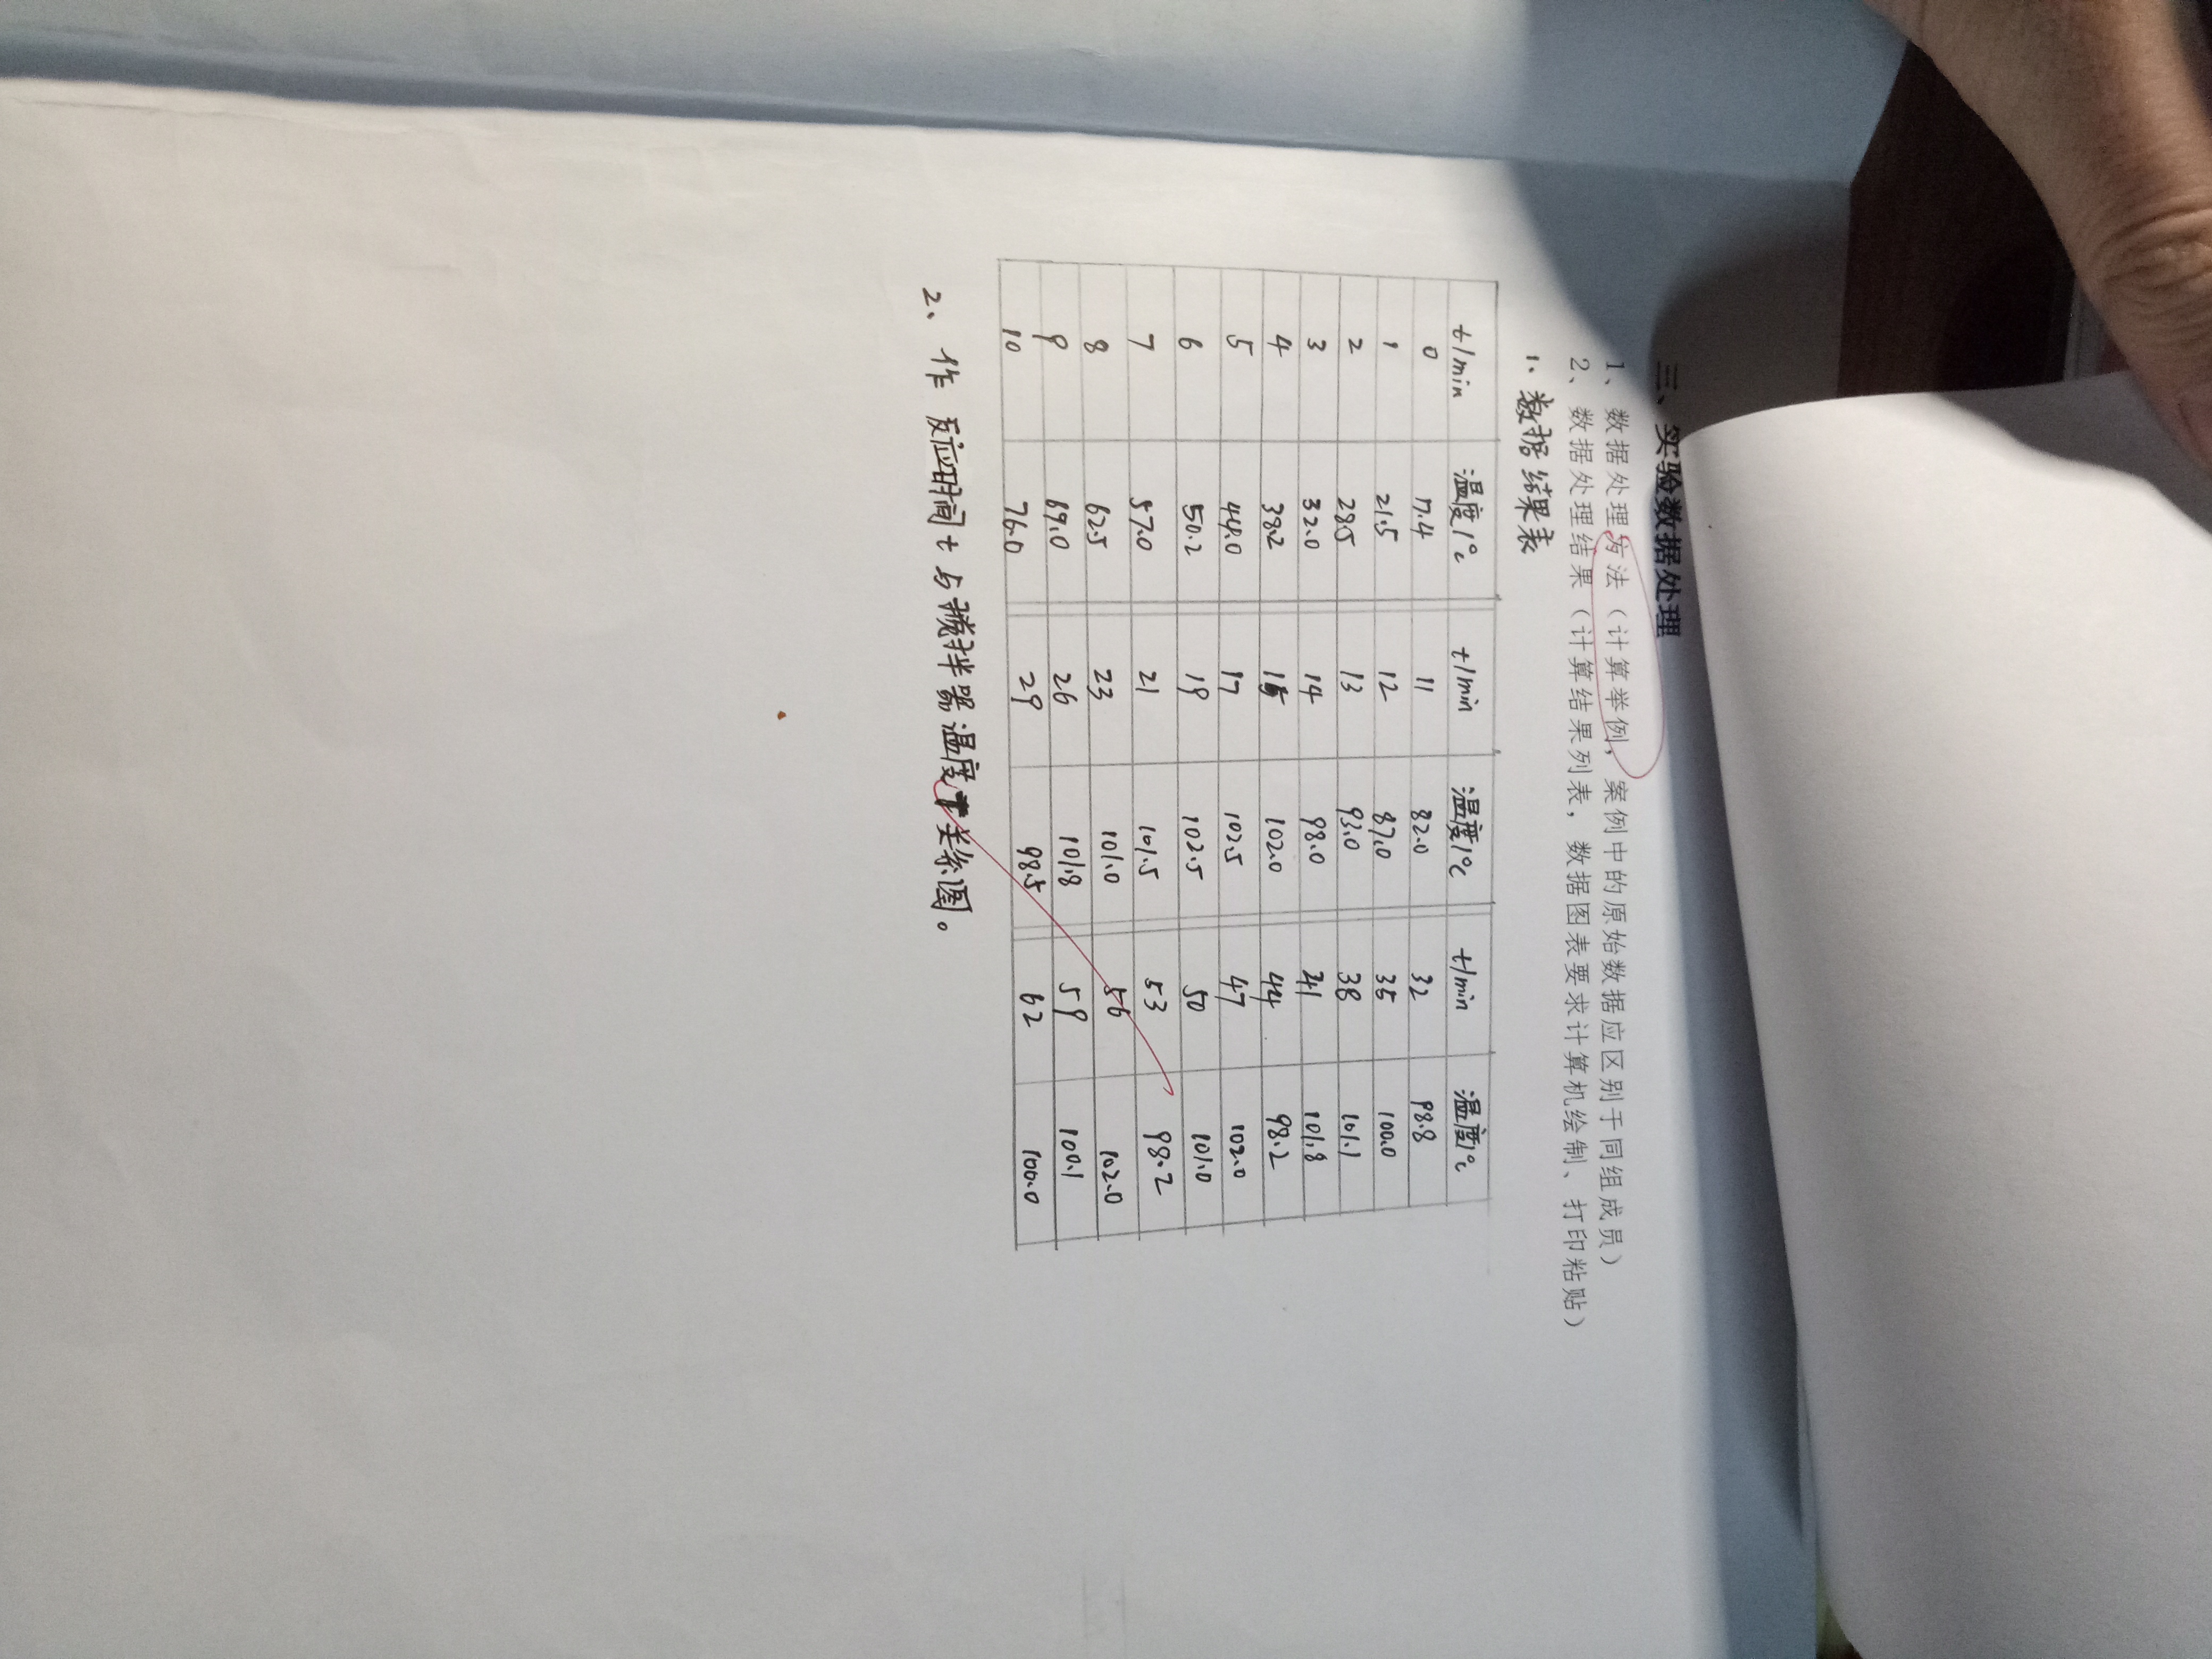 三、实验数据处理
1、数据处理方法（计算举例，案例中的原始数据应区别于同组成员）
2、数据处理结果（计算结果列表，数据图表要求计算机绘制、打印粘贴）
1、数据结果表
t/min 温度/℃ t/min 温度/℃ t/min 温度/℃
0 17.4 11 82.0 32 98.8
1 21.5 12 87.0 35 100.0
2 28.5 13 93.0 38 101.1
3 32.0 14 98.0 41 101.8
4 38.2 15 102.0 44 98.2
5 44.0 17 102.5 47 102.0
6 50.2 19 102.5 50 101.0
7 57.0 21 101.5 53 98.2
8 62.5 23 101.0 56 102.0
9 69.0 26 101.8 59 100.1
10 76.0 29 98.5 62 100.0
2、作反应时间t与搅拌器温度关系图。